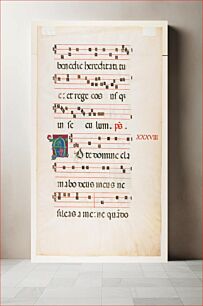 benedic hereditati tu
e: et rege eos us q
in se cu lum. ps.
XXXVIII
A d te domine cla
mabo deus meus ne
sileas a me: ne quãdo